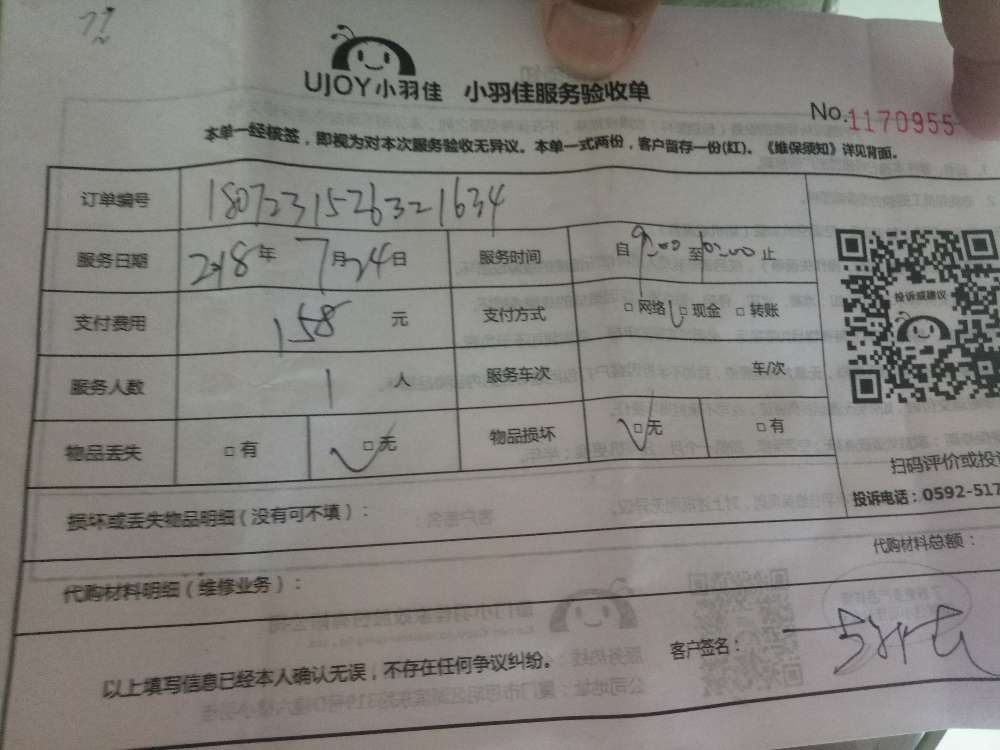 UJOY小羽佳 小羽佳服务验收单
No.1170955
本单一经核签，即视为对本次服务验收无异议。本单一式两份，客户留存一份(红)。《维保须知》详见背面。
订单编号 180723152632 1634
服务日期 2018年 7月24日 服务时间 自 9:00 至 止
支付费用 158 元 支付方式 □网络 □现金 □转账
投诉或建议
服务人数 1 人 服务车次 车/次
物品丢失 □有 □无 物品损坏 □无 □有
扫码评价或投
投诉电话：0592-517
损坏或丢失物品明细（没有可不填）：
代购材料总额：
代购材料明细（维修业务）：
以上填写信息已经本人确认无误，不存在任何争议纠纷。
客户签名：